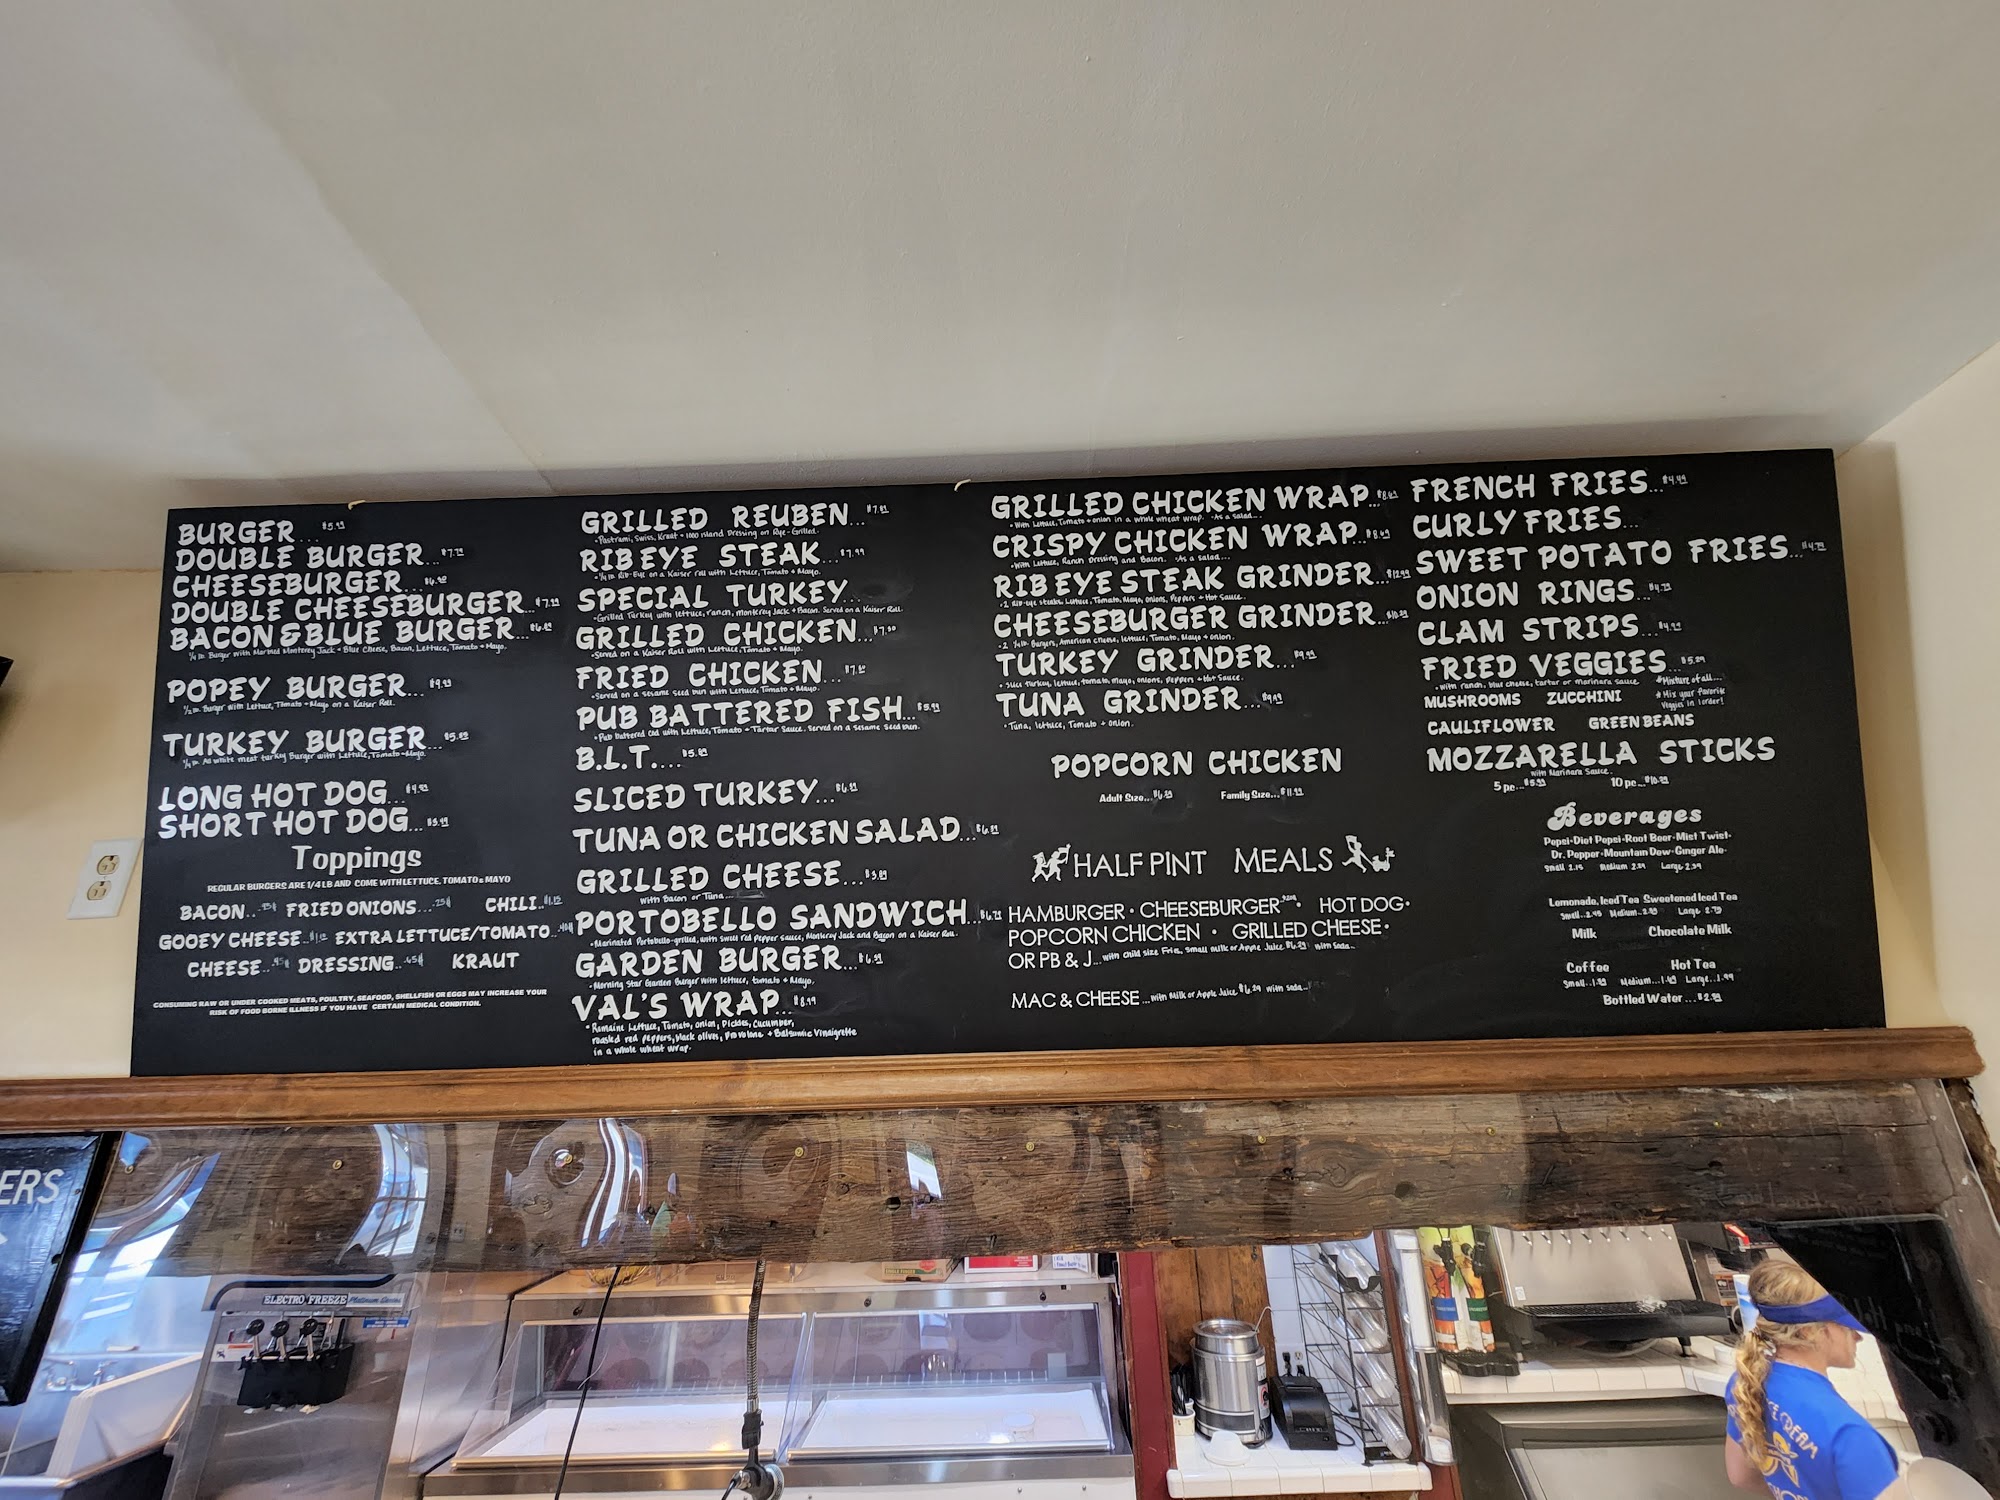 BURGER... $5.99
DOUBLE BURGER...
CHEESEBURGER...
DOUBLE CHEESEBURGER... $7.99
BACON & BLUE BURGER...
1/4 lb. Burger with Marbled Monterey Jack + Blue Cheese, Bacon, Lettuce, Tomato + Mayo.
POPEY BURGER... $9.99
1/2 lb. Burger with Lettuce, Tomato + Mayo on a Kaiser Roll.
TURKEY BURGER...
1/4 lb. All white meat turkey Burger with Lettuce, Tomato + Mayo.
LONG HOT DOG... $4.99
SHORT HOT DOG... $3.99
Toppings
REGULAR BURGERS ARE 1/4 LB AND COME WITH LETTUCE, TOMATO & MAYO
BACON... FRIED ONIONS... CHILI...
GOOEY CHEESE... EXTRA LETTUCE/TOMATO...
CHEESE... DRESSING... KRAUT
CONSUMING RAW OR UNDER COOKED MEATS, POULTRY, SEAFOOD, SHELLFISH OR EGGS MAY INCREASE YOUR
RISK OF FOOD BORNE ILLNESS IF YOU HAVE CERTAIN MEDICAL CONDITION.
GRILLED REUBEN...
• Pastrami, Swiss, Kraut + 1000 Island Dressing on Rye - Grilled.
RIB EYE STEAK... $7.99
• 1/4 lb. Rib-Eye on a Kaiser roll with Lettuce, Tomato + Mayo.
SPECIAL TURKEY...
• Grilled Turkey with lettuce, ranch, Monterey Jack + Bacon. Served on a Kaiser Roll.
GRILLED CHICKEN...
• Served on a Kaiser Roll with Lettuce, Tomato + Mayo.
FRIED CHICKEN...
• Served on a Sesame Seed bun with Lettuce, Tomato + Mayo.
PUB BATTERED FISH... $5.99
• Pub battered Cod with Lettuce, Tomato + Tartar Sauce. Served on a Sesame Seed bun.
B.L.T....
SLICED TURKEY...
TUNA OR CHICKEN SALAD...
GRILLED CHEESE...
with Bacon or Tuna...
PORTOBELLO SANDWICH...
• Marinated Portobello-grilled, with sweet red pepper sauce, Monterey Jack and Bacon on a Kaiser Roll.
GARDEN BURGER...
• Morning Star Garden Burger with lettuce, tomato + Mayo.
VAL'S WRAP... $8.99
• Romaine Lettuce, Tomato, onion, Pickles, Cucumber,
roasted red peppers, black olives, Provolone + Balsamic Vinaigrette
in a whole wheat wrap.
GRILLED CHICKEN WRAP...
• With Lettuce, Tomato + onion in a whole wheat wrap. • As a Salad...
CRISPY CHICKEN WRAP...
• With Lettuce, Ranch Dressing and Bacon. • As a Salad...
RIB EYE STEAK GRINDER... $12.99
• 2 Rib-eye steaks, Lettuce, Tomato, Mayo, Onions, Peppers + Hot Sauce.
CHEESEBURGER GRINDER...
• 2 1/4 lb. Burgers, American cheese, lettuce, Tomato, Mayo + onion.
TURKEY GRINDER... $9.99
• Slice turkey, lettuce, tomato, mayo, onions, peppers + Hot Sauce.
TUNA GRINDER...
• Tuna, lettuce, Tomato + onion.
POPCORN CHICKEN
Adult Size... Family Size... $11.99
HALF PINT MEALS
HAMBURGER • CHEESEBURGER • HOT DOG •
POPCORN CHICKEN • GRILLED CHEESE •
OR PB & J... with child size Fries, small milk or Apple Juice $6.29 with Soda...
MAC & CHEESE... with Milk or Apple Juice $6.29 with soda...
FRENCH FRIES... $4.49
CURLY FRIES...
SWEET POTATO FRIES...
ONION RINGS...
CLAM STRIPS... $4.99
FRIED VEGGIES...
• with ranch, blue cheese, tartar or marinara sauce
*Mixture of all...
MUSHROOMS ZUCCHINI
* Mix your favorite
Veggies in 1 order!
CAULIFLOWER GREEN BEANS
MOZZARELLA STICKS
with Marinara Sauce.
5 pc... $5.99 10 pc...
Beverages
Pepsi•Diet Pepsi•Root Beer•Mist Twist•
Dr. Pepper•Mountain Dew•Ginger Ale•
Small Medium Large 2.59
Lemonade, Iced Tea Sweetened Iced Tea
Small Medium Large 2.79
Milk Chocolate Milk
Coffee Hot Tea
Small Medium Large...1.99
Bottled Water...
ERS
ELECTRO FREEZE